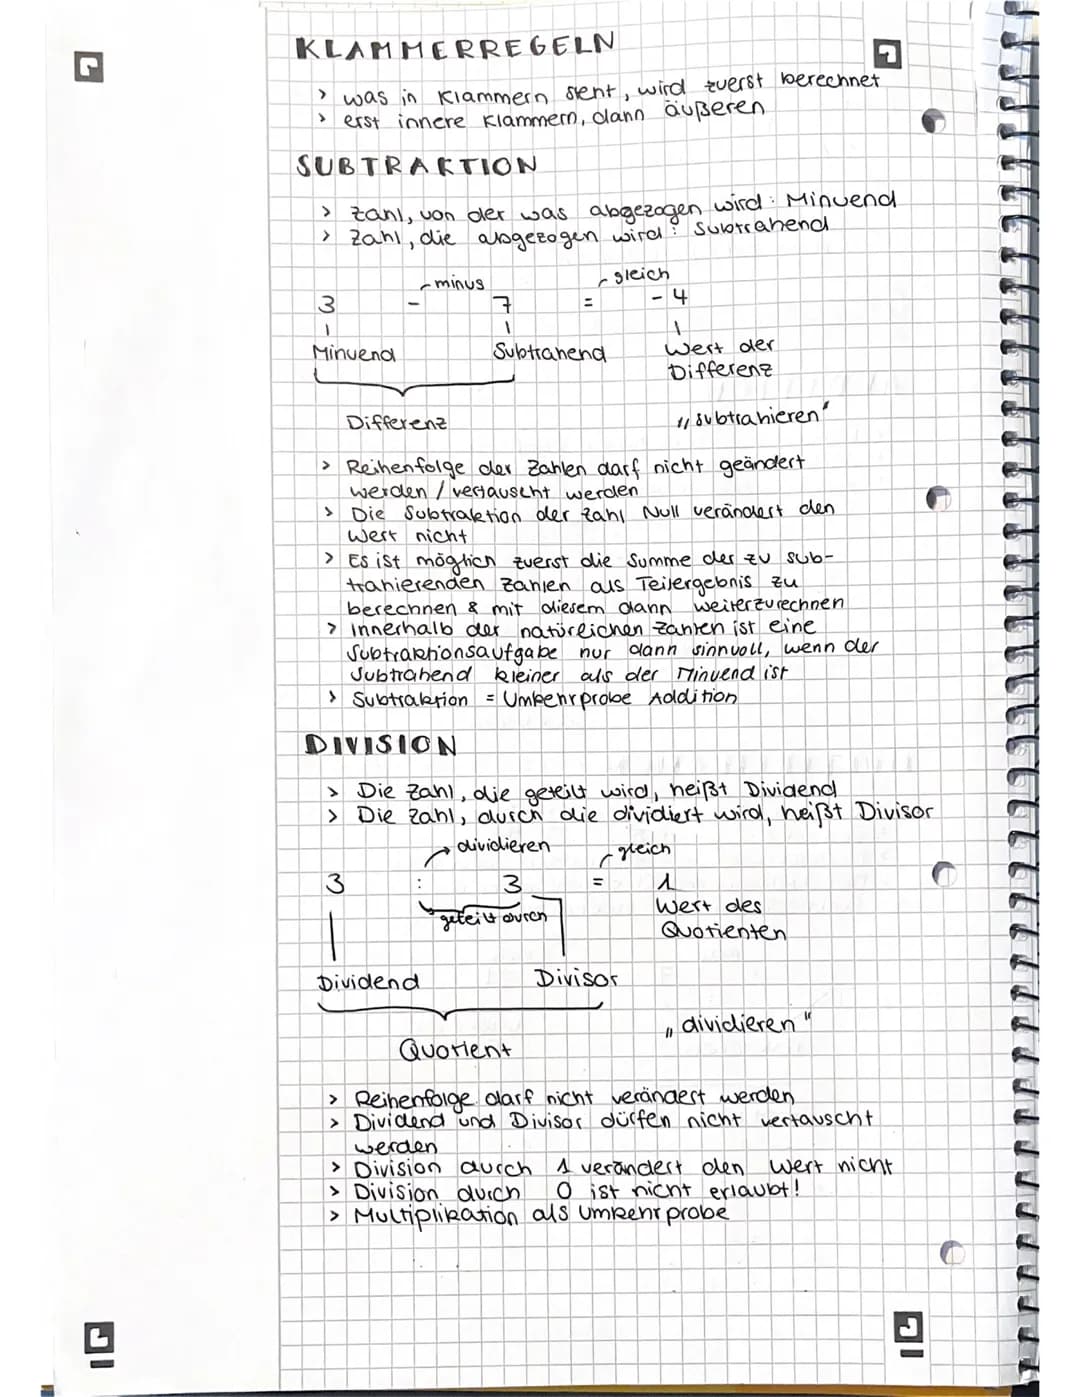 KLAMMERREGELN
> was in Klammern steht, wird zuerst berechnet
> erst innere Klammern, dann äußeren
SUBTRAKTION
> Zahl, von der was abgezogen wird: Minuend
> Zahl, die abgezogen wird: Subtrahend
minus gleich
3 - 7 = - 4
Minuend Subtrahend Wert der
Differenz
Differenz „subtrahieren"
> Reihenfolge der Zahlen darf nicht geändert
werden / vertauscht werden
> Die Subtraktion der Zahl Null verändert den
Wert nicht
> Es ist möglich zuerst die Summe der zu sub-
trahierenden Zahlen als Teilergebnis zu
berechnen & mit diesem dann weiterzurechnen
> Innerhalb der natürlichen Zahlen ist eine
Subtraktionsaufgabe nur dann sinnvoll, wenn der
Subtrahend kleiner als der Minuend ist
> Subtraktion = Umkehrprobe Addition
DIVISION
> Die Zahl, die geteilt wird, heißt Dividend
> Die Zahl, durch die dividiert wird, heißt Divisor
dividieren gleich
3 : 3 = 1
geteilt durch Wert des
Quotienten
Dividend Divisor
„dividieren"
Quotient
> Reihenfolge darf nicht verändert werden
> Dividend und Divisor dürfen nicht vertauscht
werden
> Division durch 1 verändert den Wert nicht
> Division durch 0 ist nicht erlaubt!
> Multiplikation als Umkehrprobe